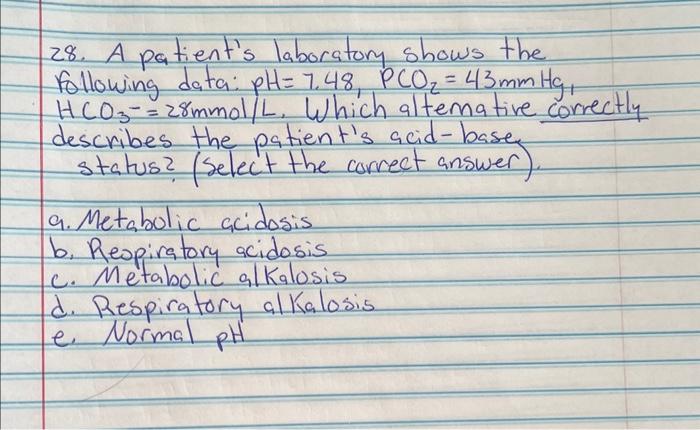 28. A patient's laboratory shows the
following data: pH= 7.48, PCO₂ = 43mm Hg,
HCO₃⁻ = 28mmol/L. Which alternative correctly
describes the patient's acid-base
status? (Select the correct answer).
a. Metabolic acidosis
b. Respiratory acidosis
c. Metabolic alkalosis
d. Respiratory alkalosis
e. Normal pH